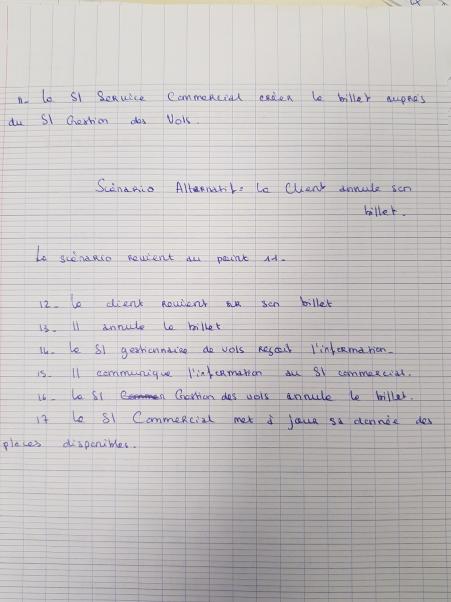 11- Le SI Service Commercial créer le billet auprès
du SI Gestion des Vols.
Scénario Alternatif: Le Client annule son
billet.
Le scénario revient au point 11.
12- Le client revient sur son billet
13- Il annule le billet
14- Le SI gestionnaire de vols reçoit l'information.
15- Il communique l'information au SI commercial.
16- Le SI Gestion des vols annule le billet.
17 Le SI Commercial met à jour sa donnée des
places disponibles.